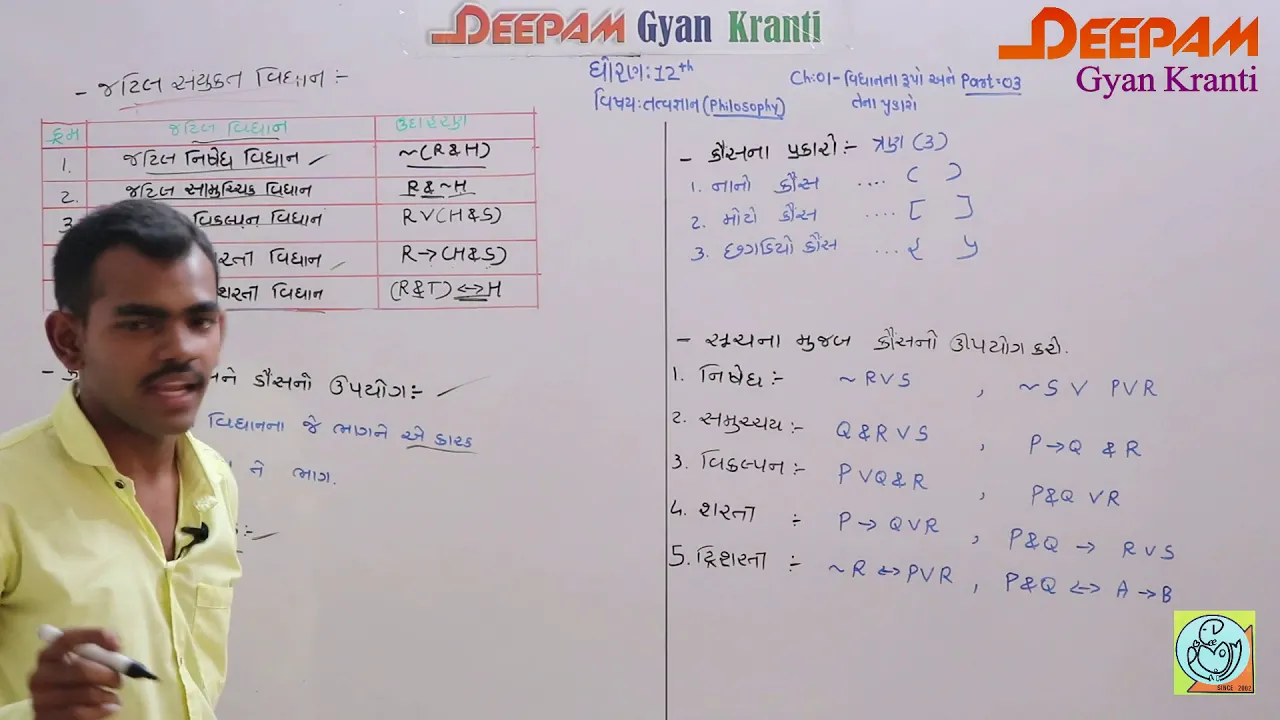 DEEPAM Gyan Kranti
DEEPAM
Gyan Kranti
ધોરણ:12th
Ch:01-વિધાનના રૂપો અને Part:03
તેના પ્રકારો
વિષય:તત્વજ્ઞાન(Philosophy)
- જટિલ સંયુક્ત વિધાન :-
ક્રમ જટિલ વિધાન ઉદાહરણ
1. જટિલ નિષેધ વિધાન ~(R&H)
2. જટિલ સામુચ્ચિક વિધાન R&~H
3 વિકલ્પન વિધાન RV(H&S)
રતી વિધાન R→(H&S)
શરતી વિધાન (R&T)↔H
કૌંસનો ઉપયોગ:-
વિધાનના જે ભાગને એ કારક
ને ભાગ.
- કૌંસના પ્રકારો:- ત્રણ (3)
1. નાનો કૌંસ .... ( )
2. મોટો કૌંસ .... [ ]
3. છગડિયો કૌંસ ... { }
- સૂચના મુજબ કૌંસનો ઉપયોગ કરો.
1. નિષેધ:- ~RVS , ~S V PVR
2. સમુચ્ચય:- Q&RVS , P→Q &R
3. વિકલ્પન:- PVQ&R , P&Q VR
4. શરતી :- P→QVR , P&Q → RVS
5. દ્વિશરતી :- ~R↔PVR , P&Q ↔ A→B
SINCE 2002